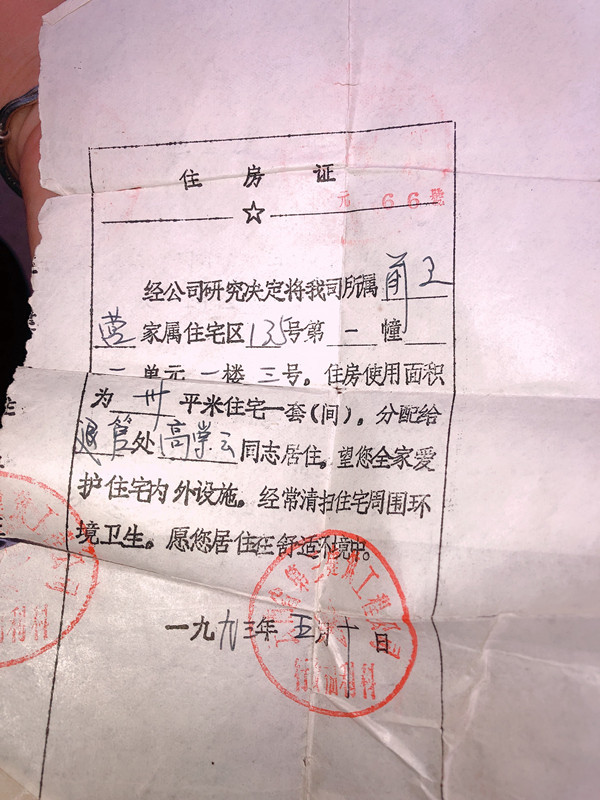 住房证
元 66號
经公司研究决定将我司所属 前王
营 家属住宅区 135 号第 一 幢
一 单元 一 楼 三 号。住房使用面积
为 卅 平米住宅一套(间)，分配给
退管处 高崇云 同志居住。望您全家爱
护住宅内外设施。经常清扫住宅周围环
境卫生。愿您居住在舒适环境中。
一九九三年五月十日
第二 工程公司
行政福利科
福利科